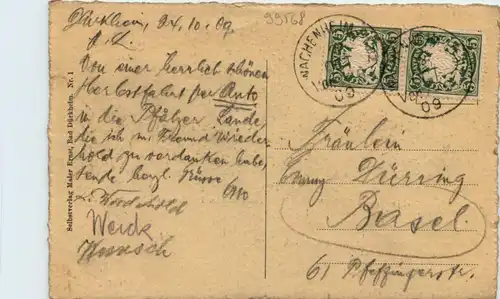 Dürkheim, 24.10.09
99568
Von einer Herrlich schönen
Herbstfahrt per Auto
in die Pfälzer Lande
die ich m. Freund wieder-
hold zu verdanken habe
sende herzl. Grüsse
Otto
Werck
Selbstverlag Maler Ernst, Bad Dürkheim. Nr. 1
WACHENHEIM
09
09
Fräulein
Emmy Düring
Basel
61 Pfeffingerstr.